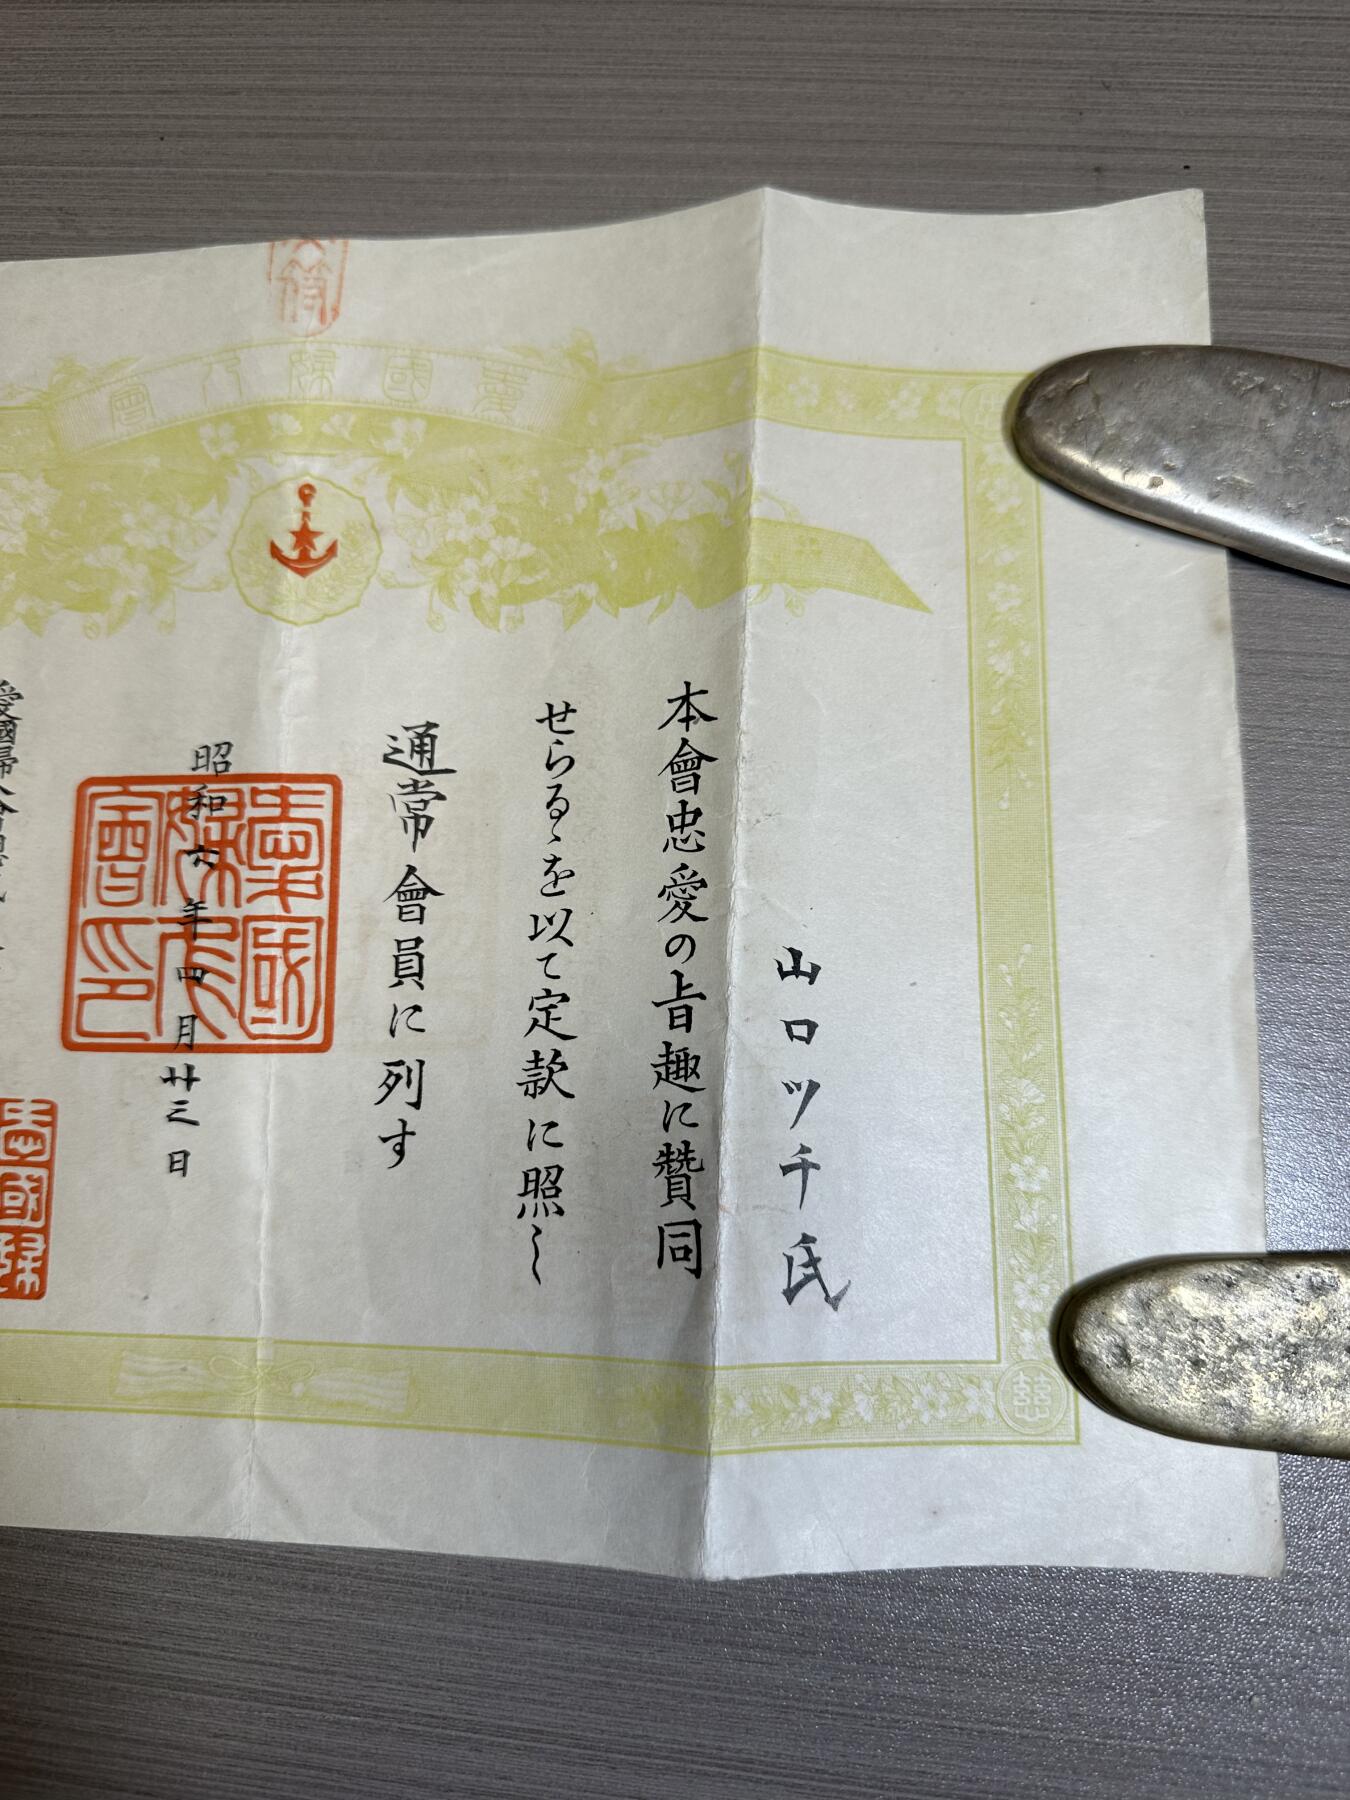 愛國婦人會
山口ツチ氏
本會忠愛の旨趣に贊同
せらるゝを以て定款に照し
通常會員に列す
昭和六年四月廿三日
愛國婦人會印
愛國婦
慈